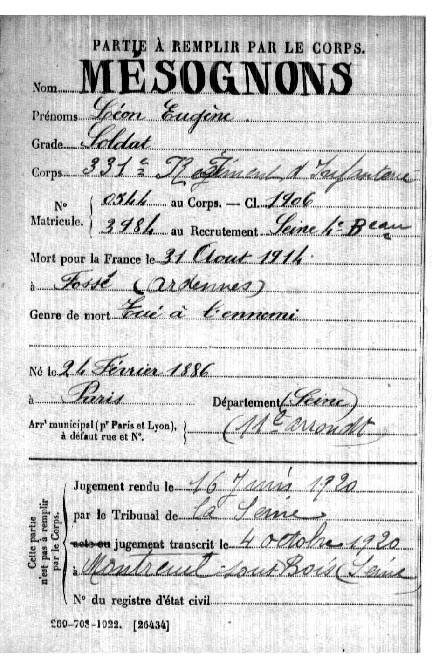 PARTIE À REMPLIR PAR LE CORPS.
Nom MÉSOGNONS
Prénoms Léon Eugène
Grade Soldat
Corps 331e Régiment d'Infanterie
N° 0544 au Corps. — Cl. 1906
Matricule. 3984 au Recrutement Seine 4e Beau
Mort pour la France le 31 Aout 1914
à Fossé (Ardennes)
Genre de mort Tué à l'ennemi
Né le 24 Février 1886
à Paris Département (Seine)
Arrt municipal (pr Paris et Lyon), à défaut rue et N°. (11e arrondt)
Cette partie n'est pas à remplir par le Corps.
Jugement rendu le 16 Juin 1920
par le Tribunal de la Seine
acte ou jugement transcrit le 4 octobre 1920
à Montreuil sous Bois (Seine)
N° du registre d'état civil
260-708-1922. [26434]